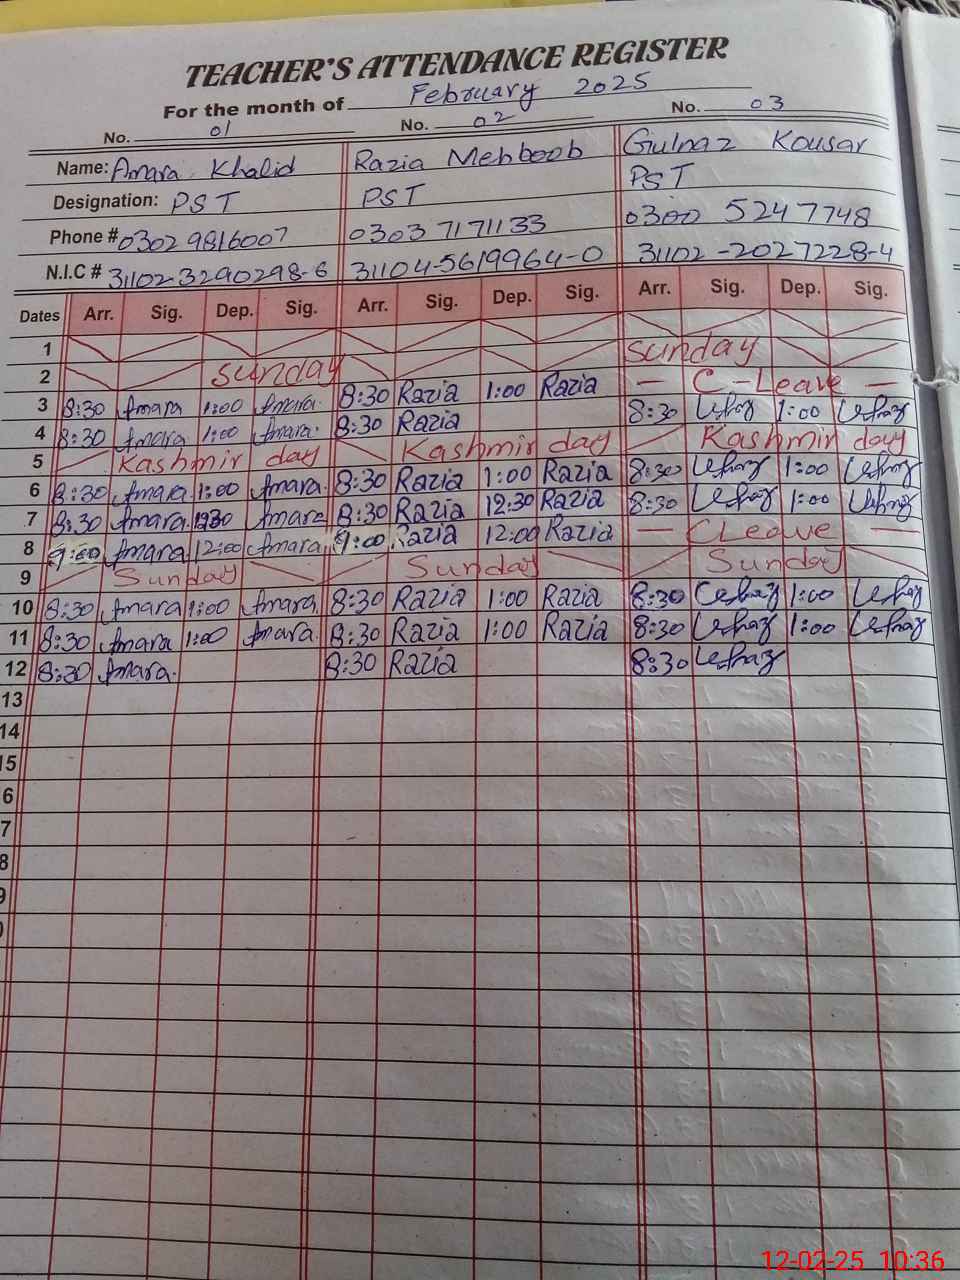 TEACHER'S ATTENDANCE REGISTER
For the month of February 2025
No. 01 No. 02 No. 03
Name: Amara Khalid Razia Mehboob Gulnaz Kousar
Designation: PST PST PST
Phone # 03029816007 03037171133 0300 5247748
N.I.C # 31102-3290298-6 31104-5619964-0 31102-2027228-4
Dates Arr. Sig. Dep. Sig. Arr. Sig. Dep. Sig. Arr. Sig. Dep. Sig.
1
2 Sunday Sunday
3 8:30 Amara 1:00 Amara. 8:30 Razia 1:00 Razia — C-Leave —
4 8:30 Amara 1:00 Amara. 8:30 Razia 8:30 1:00
5 Kashmir day Kashmir day Kashmir day
6 8:30 Amara 1:00 Amara. 8:30 Razia 1:00 Razia 8:30 1:00
7 8:30 Amara. Amara 8:30 Razia 12:30 Razia 8:30 1:00
8 9:00 Amara 12:00 Amara 9:00 Razia 12:00 Razia — CLeave —
9 Sunday Sunday Sunday
10 8:30 Amara 1:00 Amara. 8:30 Razia 1:00 Razia 8:30 1:00
11 8:30 Amara 1:00 Amara. 8:30 Razia 1:00 Razia 8:30 1:00
12 8:30 Amara. 8:30 Razia 8:30
13
14
15
6
7
8
9
12-02-25 10:36